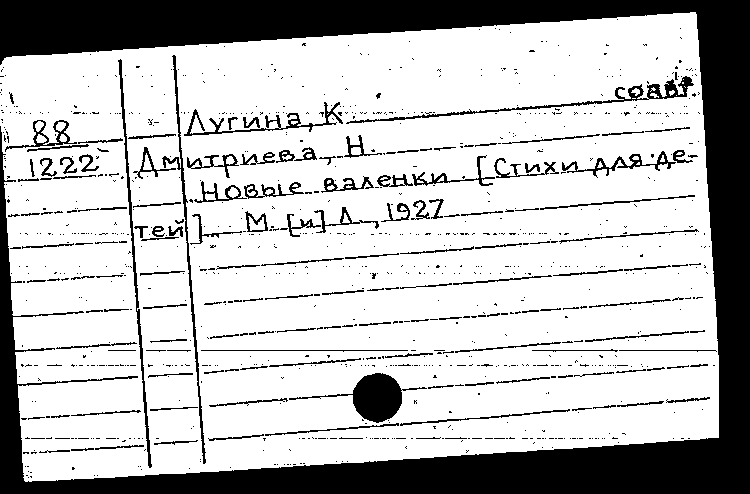 Лугина, К. соавт.
88
1222 Дмитриева, Н.
Новые валенки. [Стихи для де-
тей]. М. [и] Л., 1927